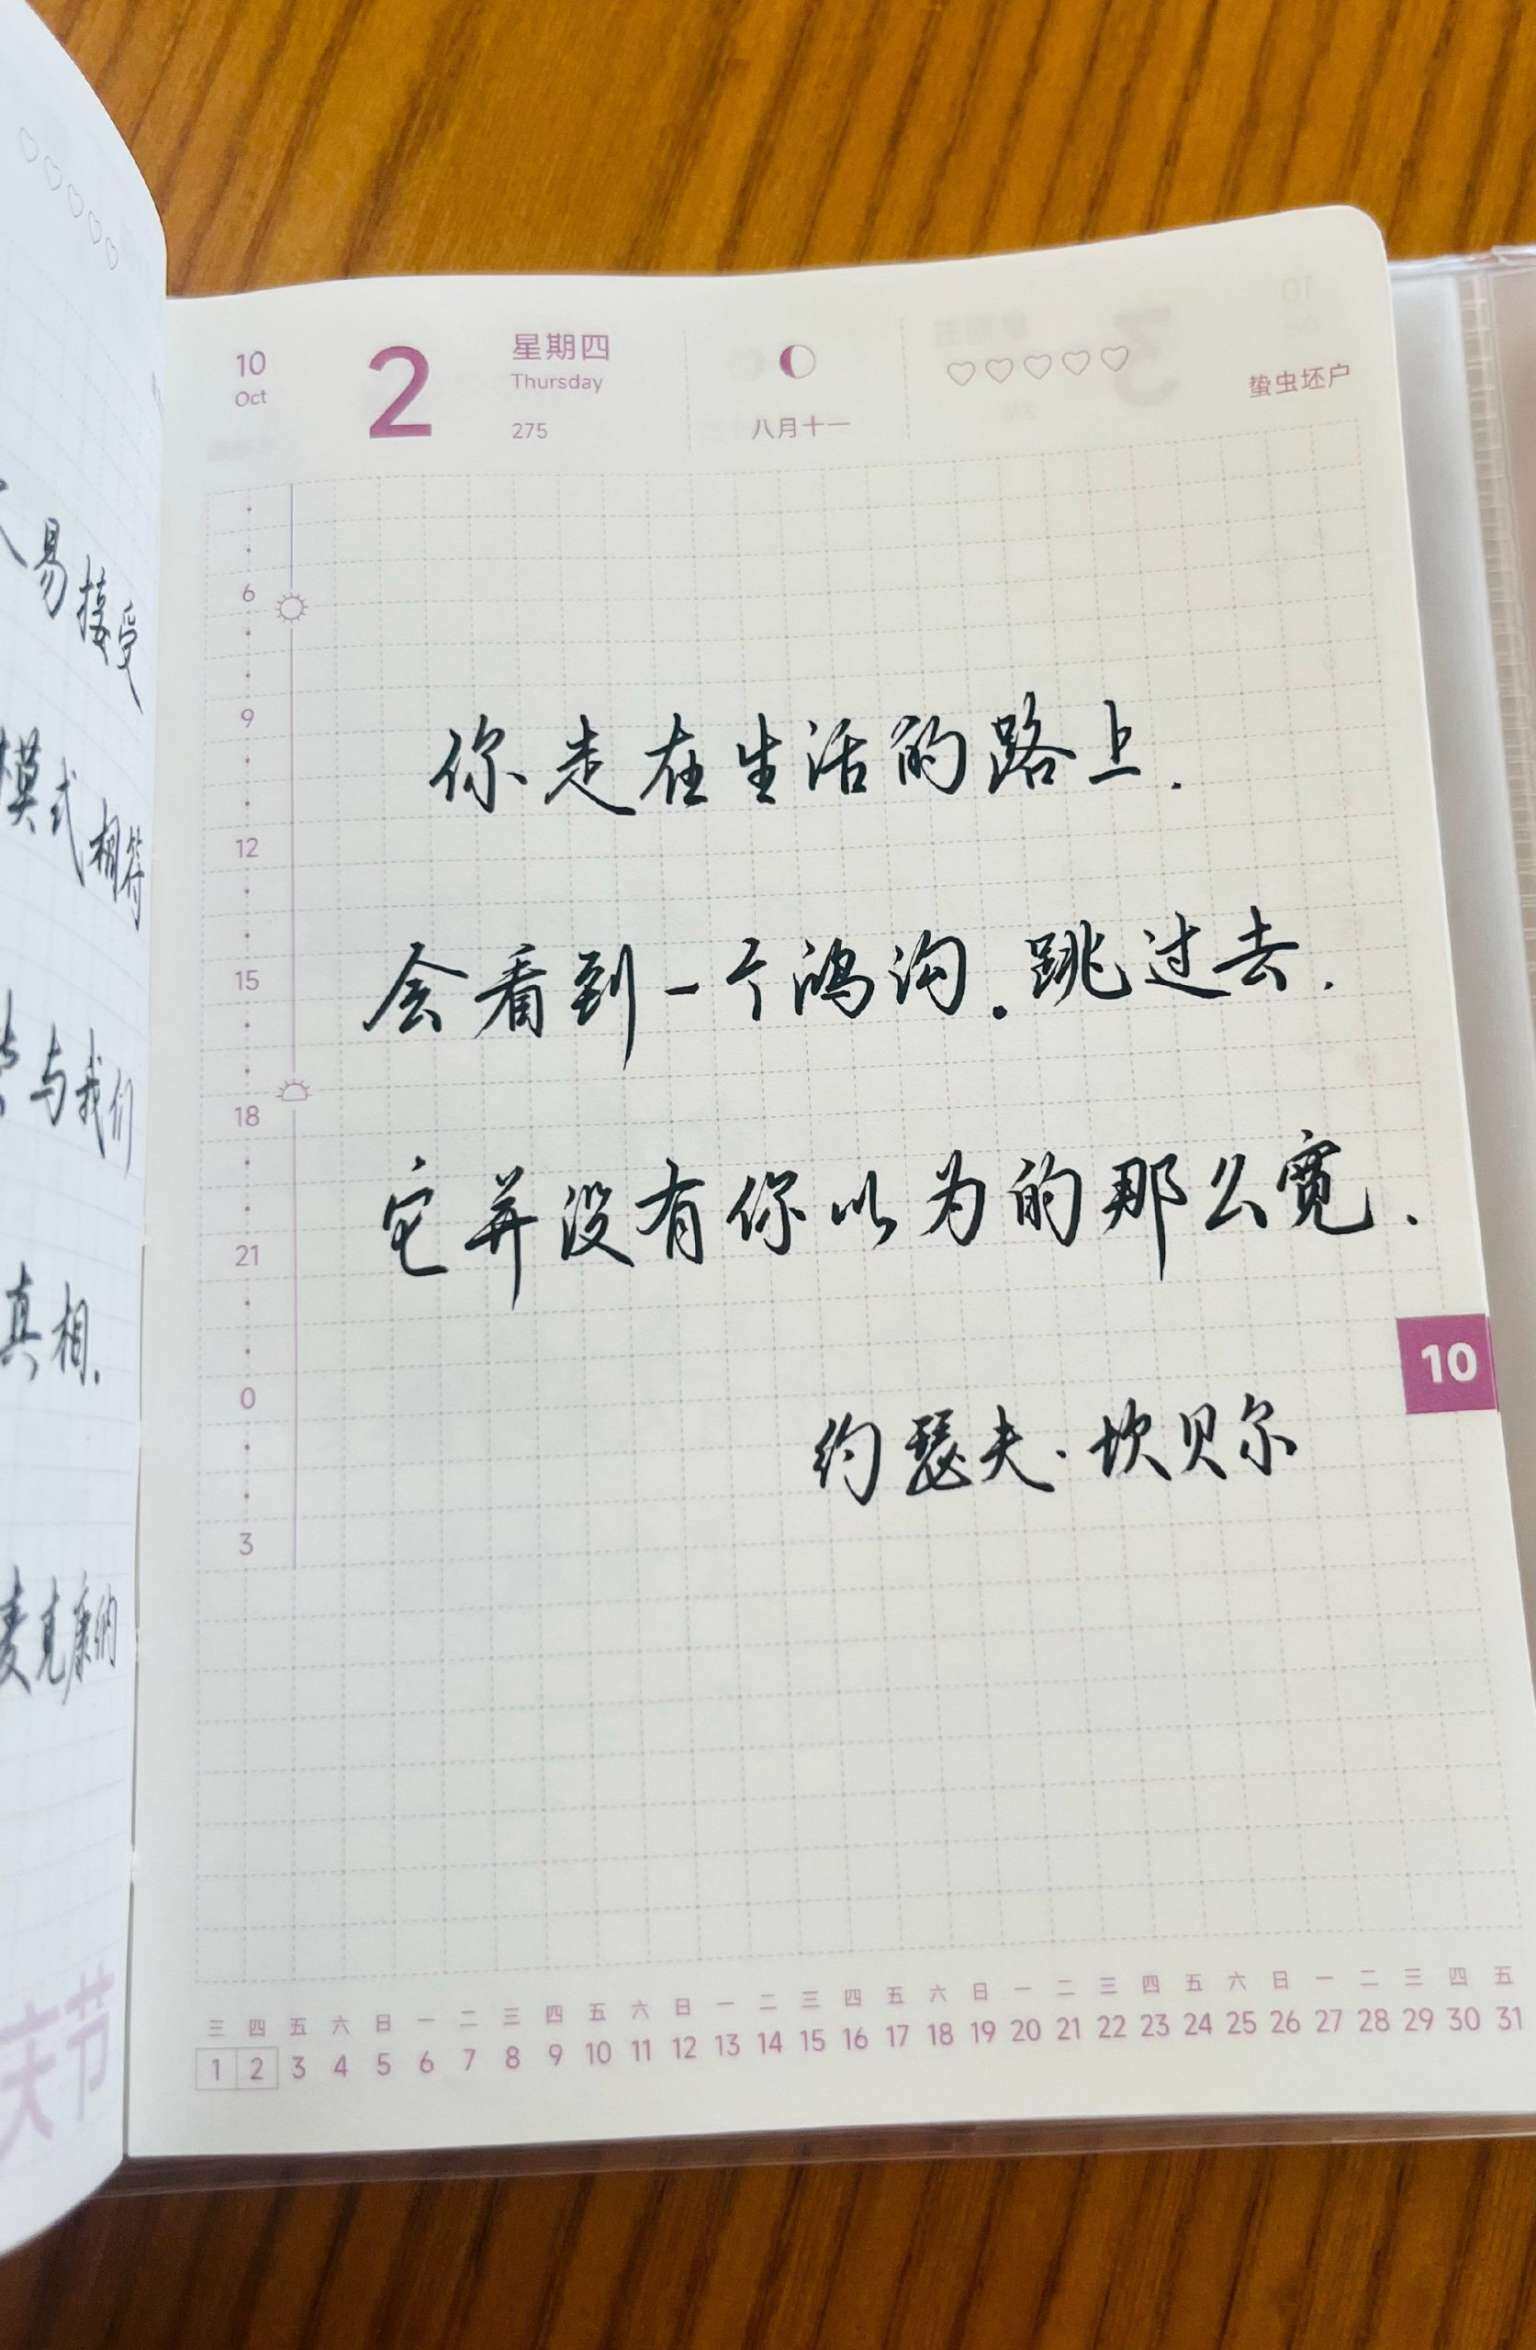 易接受
模式相符
与我们
真相.
麦克康纳
庆节
10
Oct
2
星期四
Thursday
275
八月十一
蛰虫坯户
6
9
12
15
18
21
0
3
你走在生活的路上.
会看到一个鸿沟.跳过去.
它并没有你以为的那么宽.
约瑟夫·坎贝尔
10
三 四 五 六 日 一 二 三 四 五 六 日 一 二 三 四 五 六 日 一 二 三 四 五 六 日 一 二 三 四 五
1 2 3 4 5 6 7 8 9 10 11 12 13 14 15 16 17 18 19 20 21 22 23 24 25 26 27 28 29 30 31